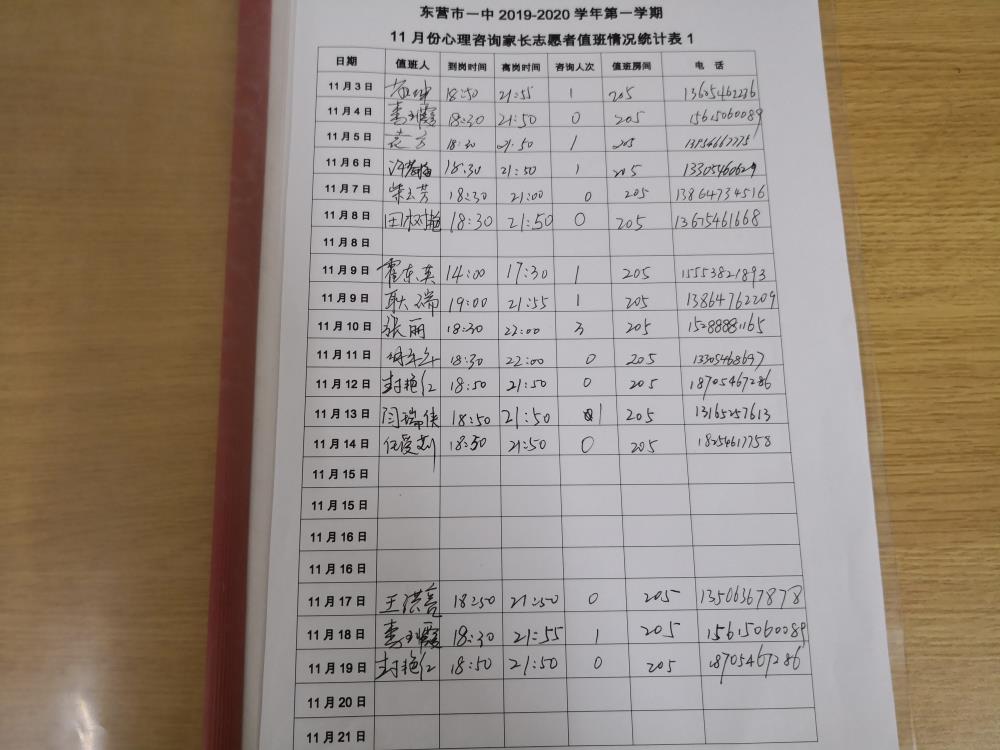 东营市一中 2019-2020 学年第一学期
11 月份心理咨询家长志愿者值班情况统计表 1
日期 值班人 到岗时间 离岗时间 咨询人次 值班房间 电 话
11 月 3 日 18:50 21:55 1 205 13605462236
11 月 4 日 李玉霞 18:30 21:50 0 205 15615060089
11 月 5 日 18:30 21:50 1 205
11 月 6 日 18:30 21:50 1 205
11 月 7 日 柴云芳 18:30 21:00 0 205 13864734516
11 月 8 日 田树艳 18:30 21:50 0 205 13675461668
11 月 8 日
11 月 9 日 霍东英 14:00 17:30 1 205 15553821893
11 月 9 日 耿瑞 19:00 21:55 1 205 13864762209
11 月 10 日 张丽 18:30 22:00 3 205 15288881165
11 月 11 日 18:30 22:00 0 205 13305468697
11 月 12 日 封艳红 18:50 21:50 0 205 18705467286
11 月 13 日 闫瑞侠 18:50 21:50 1 205 13165257613
11 月 14 日 任爱利 18:50 21:50 0 205 18254617758
11 月 15 日
11 月 15 日
11 月 16 日
11 月 16 日
11 月 17 日 王洪亮 18:50 21:50 0 205 13506367878
11 月 18 日 李玉霞 18:30 21:55 1 205 15615060089
11 月 19 日 封艳红 18:50 21:50 0 205 18705467286
11 月 20 日
11 月 21 日